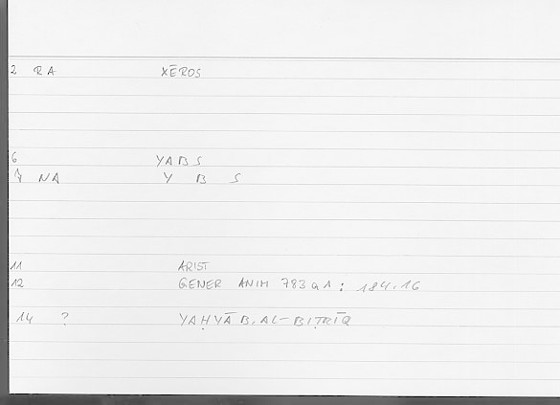 2 RA XĒROS
6 YABS
7 NA Y B S
11 ARIST
12 GENER ANIM 783a1: 184.16
14 ? YAḤYĀ B. AL-BIṬRĪQ